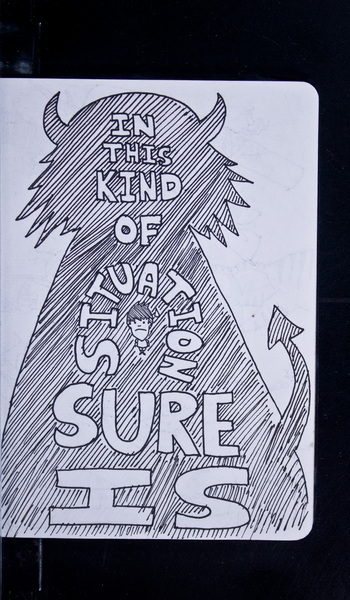 IN
THIS
KIND
OF
SITUATION
SURE
IS